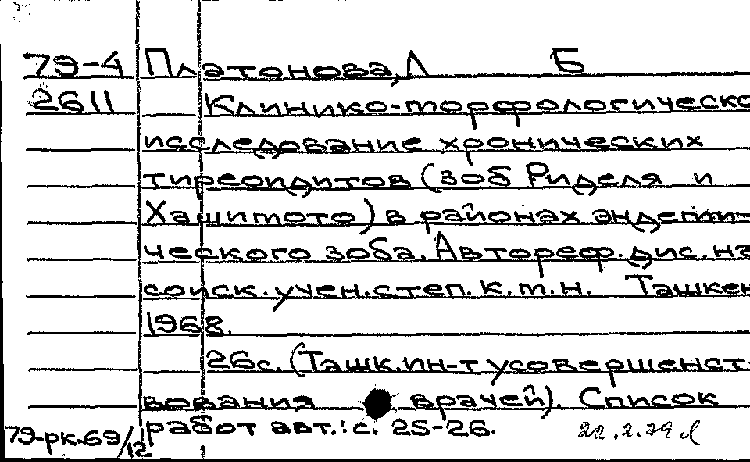 79-4 Платонова, Л Б
2611 Клинико-морфологическо
исследование хронических
тиреоидитов (зоб Риделя и
Хашимото) в районах эндеми-
ческого зоба. Автореф. дис. на
соиск. учен. степ. к. м. н. Ташкен
1968.
26с. (Ташк. ин-т усовершенст-
вования врачей). Список
работ авт.: с. 25-26.
79-рк.69/12 22.2.79